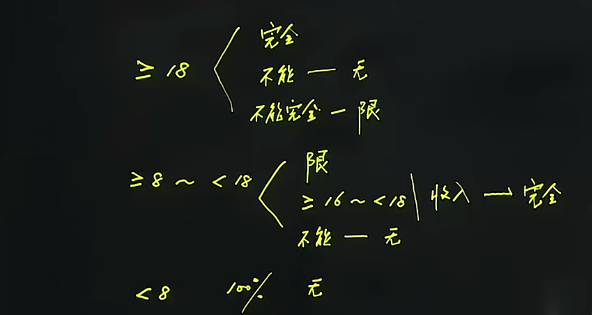 完全
≥ 18
不能 — 无
不能完全 — 限
限
≥ 8 ~ < 18
≥ 16 ~ < 18 | 收入 — 完全
不能 — 无
< 8 100% 无